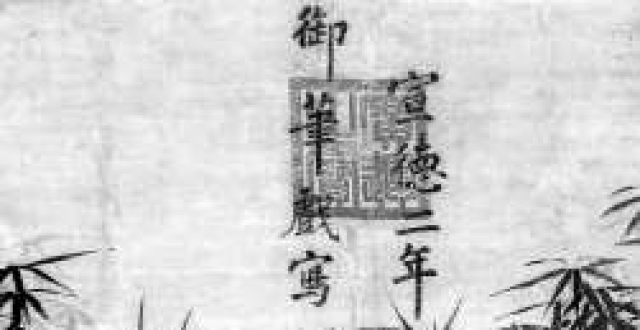 宣德二年
御筆戲寫